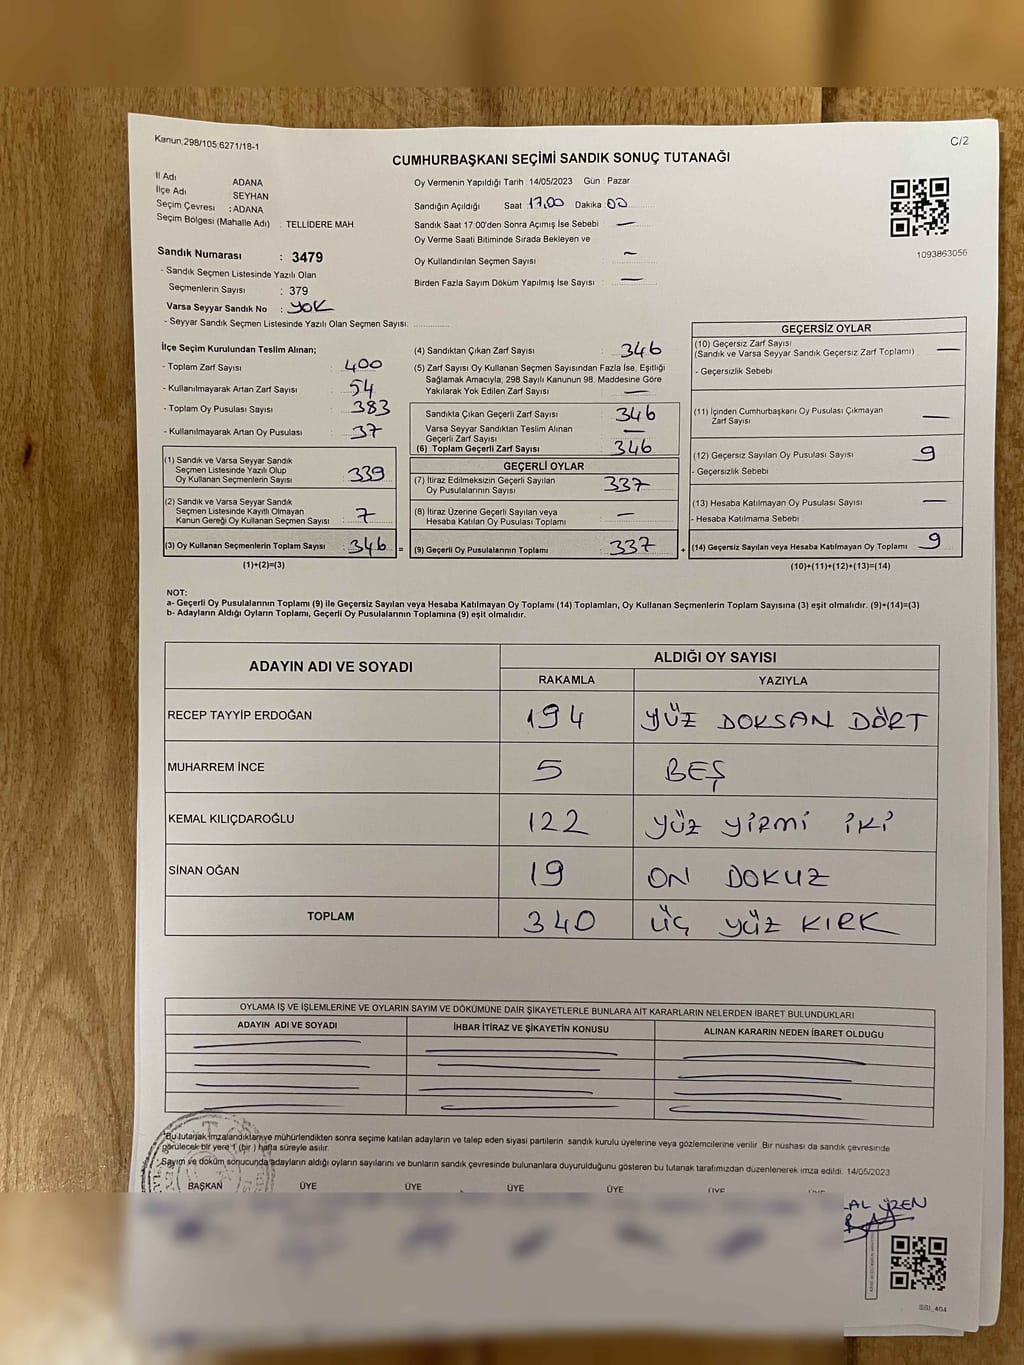 Kanun:298/105;6271/18-1
C/2
CUMHURBAŞKANI SEÇİMİ SANDIK SONUÇ TUTANAĞI
İl Adı ADANA
İlçe Adı SEYHAN
Seçim Çevresi : ADANA
Seçim Bölgesi (Mahalle Adı) : TELLİDERE MAH
Sandık Numarası : 3479
- Sandık Seçmen Listesinde Yazılı Olan
Seçmenlerin Sayısı : 379
Varsa Seyyar Sandık No : YOK
- Seyyar Sandık Seçmen Listesinde Yazılı Olan Seçmen Sayısı:
Oy Vermenin Yapıldığı Tarih 14/05/2023 Gün Pazar
Sandığın Açıldığı Saat 17.00 Dakika 00
Sandık Saat 17:00'den Sonra Açımış İse Sebebi —
Oy Verme Saati Bitiminde Sırada Bekleyen ve
Oy Kullandırılan Seçmen Sayısı : —
Birden Fazla Sayım Döküm Yapılmış İse Sayısı : —
1093863056
İlçe Seçim Kurulundan Teslim Alınan;
- Toplam Zarf Sayısı : 400
- Kullanılmayarak Artan Zarf Sayısı : 54
- Toplam Oy Pusulası Sayısı : 383
- Kullanılmayarak Artan Oy Pusulası : 37
(1) Sandık ve Varsa Seyyar Sandık
Seçmen Listesinde Yazılı Olup
Oy Kullanan Seçmenlerin Sayısı : 339
(2) Sandık ve Varsa Seyyar Sandık
Seçmen Listesinde Kayıtlı Olmayan
Kanun Gereği Oy Kullanan Seçmen Sayısı : 7
(3) Oy Kullanan Seçmenlerin Toplam Sayısı : 346 =
(1)+(2)=(3)
(4) Sandıktan Çıkan Zarf Sayısı : 346
(5) Zarf Sayısı Oy Kullanan Seçmen Sayısından Fazla İse, Eşitliği
Sağlamak Amacıyla, 298 Sayılı Kanunun 98. Maddesine Göre
Yakılarak Yok Edilen Zarf Sayısı : —
Sandıkta Çıkan Geçerli Zarf Sayısı : 346
Varsa Seyyar Sandıktan Teslim Alınan
Geçerli Zarf Sayısı : —
(6) Toplam Geçerli Zarf Sayısı : 346
GEÇERLİ OYLAR
(7) İtiraz Edilmeksizin Geçerli Sayılan
Oy Pusulalarının Sayısı : 337
(8) İtiraz Üzerine Geçerli Sayılan veya
Hesaba Katılan Oy Pusulası Toplamı : —
(9) Geçerli Oy Pusulalarının Toplamı : 337 +
GEÇERSİZ OYLAR
(10) Geçersiz Zarf Sayısı
(Sandık ve Varsa Seyyar Sandık Geçersiz Zarf Toplamı) : —
- Geçersizlik Sebebi
(11) İçinden Cumhurbaşkanı Oy Pusulası Çıkmayan
Zarf Sayısı : —
(12) Geçersiz Sayılan Oy Pusulası Sayısı : 9
- Geçersizlik Sebebi
(13) Hesaba Katılmayan Oy Pusulası Sayısı : —
- Hesaba Katılmama Sebebi
(14) Geçersiz Sayılan veya Hesaba Katılmayan Oy Toplamı : 9
(10)+(11)+(12)+(13)=(14)
NOT:
a- Geçerli Oy Pusulalarının Toplamı (9) ile Geçersiz Sayılan veya Hesaba Katılmayan Oy Toplamı (14) Toplamları, Oy Kullanan Seçmenlerin Toplam Sayısına (3) eşit olmalıdır. (9)+(14)=(3)
b- Adayların Aldığı Oyların Toplamı, Geçerli Oy Pusulalarının Toplamına (9) eşit olmalıdır.
ADAYIN ADI VE SOYADI
ALDIĞI OY SAYISI
RAKAMLA YAZIYLA
RECEP TAYYİP ERDOĞAN 194 YÜZ DOKSAN DÖRT
MUHARREM İNCE 5 BEŞ
KEMAL KILIÇDAROĞLU 122 YÜZ YİRMİ İKİ
SİNAN OĞAN 19 ON DOKUZ
TOPLAM 340 ÜÇ YÜZ KIRK
OYLAMA İŞ VE İŞLEMLERİNE VE OYLARIN SAYIM VE DÖKÜMÜNE DAİR ŞİKAYETLERLE BUNLARA AİT KARARLARIN NELERDEN İBARET BULUNDUKLARI
ADAYIN ADI VE SOYADI İHBAR İTİRAZ VE ŞİKAYETİN KONUSU ALINAN KARARIN NEDEN İBARET OLDUĞU
Bu tutanak imzalandıktan ve mühürlendikten sonra seçime katılan adayların ve talep eden siyasi partilerin sandık kurulu üyelerine veya gözlemcilerine verilir. Bir nüshası da sandık çevresinde
görülecek bir yere 1 (bir) hafta süreyle asılır.
Sayım ve döküm sonucunda adayların aldığı oyların sayılarını ve bunların sandık çevresinde bulunanlara duyurulduğunu gösteren bu tutanak tarafımızdan düzenlenerek imza edildi. 14/05/2023
BAŞKAN ÜYE ÜYE ÜYE ÜYE ÜYE ÜYE
LAL ÜZEN